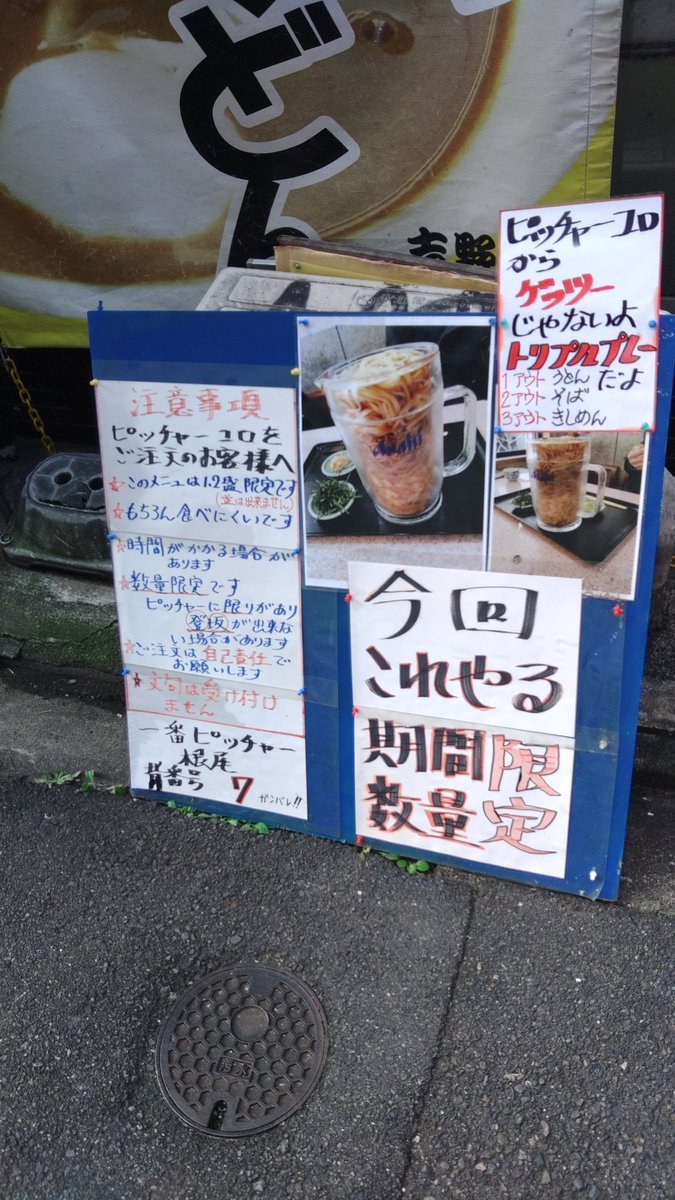 うどん
吉野
ピッチャーコロ
から
ケラツー
じゃないよ
トリプルプレー
だよ
1アウト うどん
2アウト そば
3アウト きしめん
注意事項
ピッチャーコロを
ご注文のお客様へ
☆このメニューは1.2盛限定です
(並は出来ません)
☆もちろん食べにくいです
☆時間がかかる場合が
あります
☆数量限定です
ピッチャーに限りがあり
登板が出来な
い場合があります
☆ご注文は自己責任で
お願いします
☆文句は受け付け
ません
一番ピッチャー
根尾
背番号 7
ガンバレ!!
Asahi
Asahi
今回
これやる
期間限
数量定